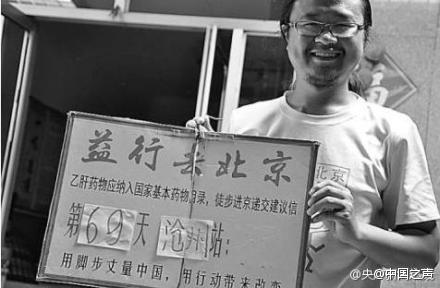 益行去北京
乙肝药物应纳入国家基本药物目录，徒步进京递交建议信
第69天 沧州站：
用脚步丈量中国，用行动带来改变
北京
@央@中国之声